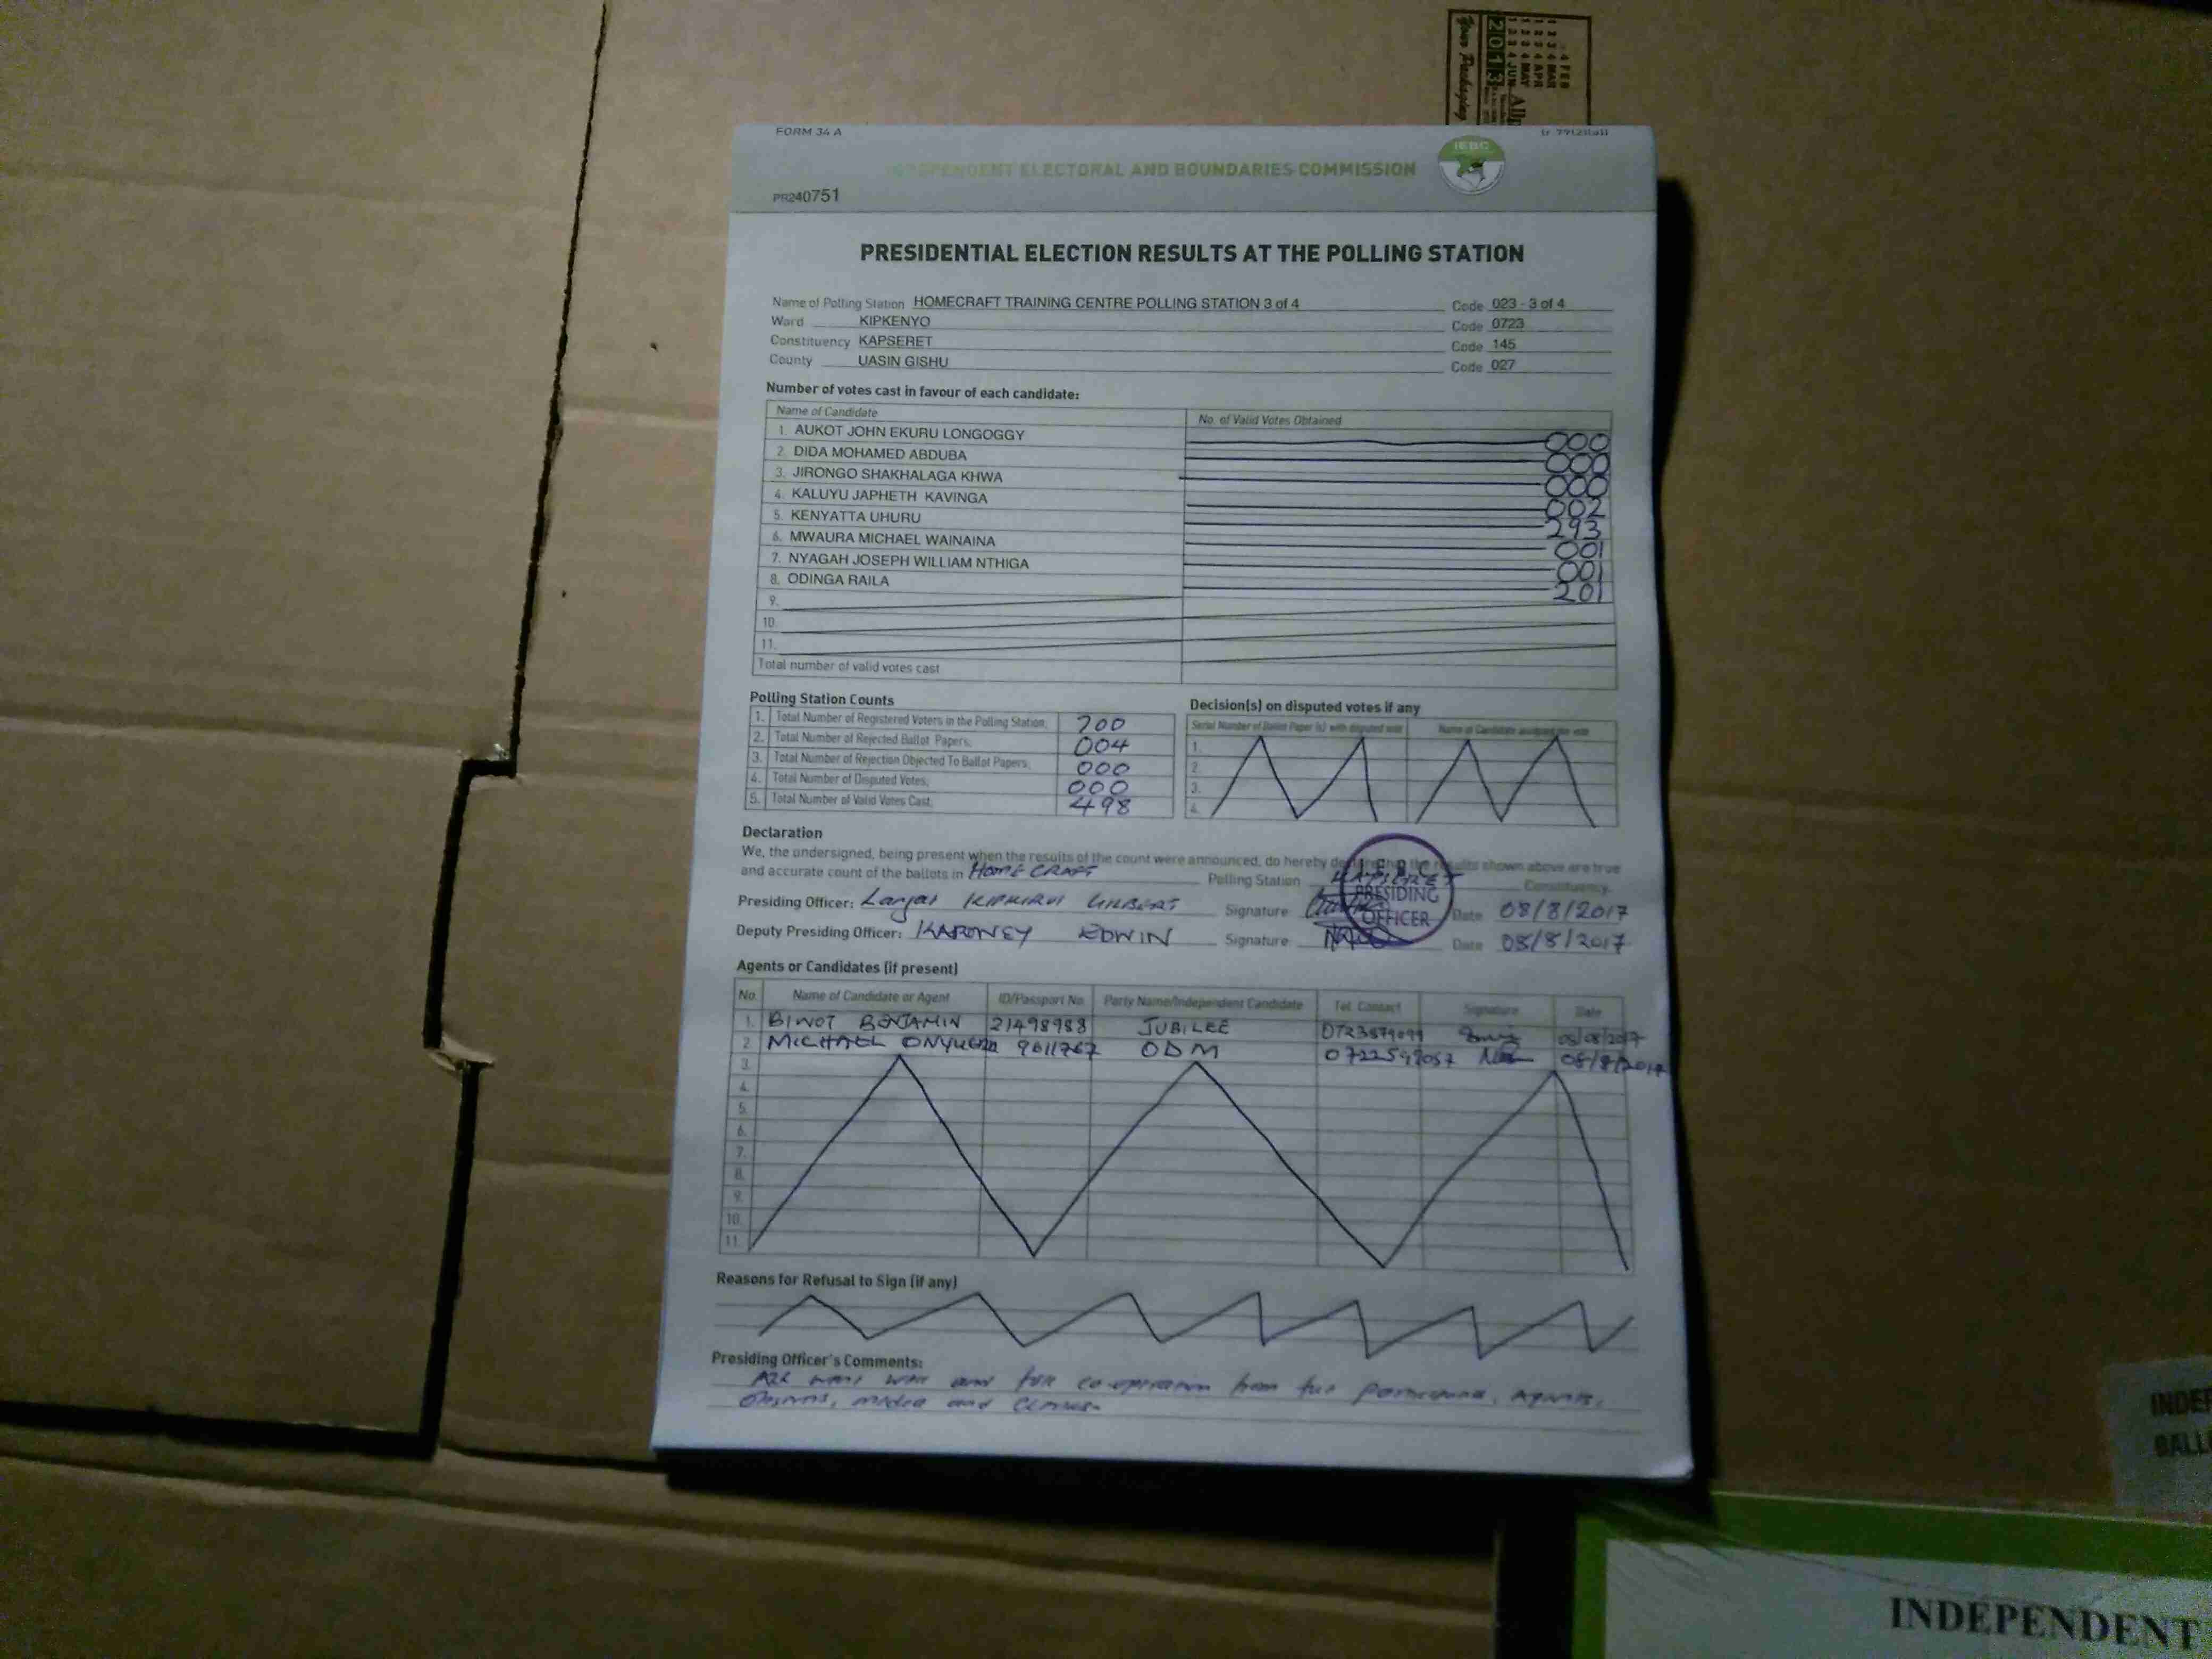 4 FEB
4 MAR
4 APR
4 MAY
4 JUN
2013
Your Packaging
FORM 34 A
INDEPENDENT ELECTORAL AND BOUNDARIES COMMISSION
IEBC
PR240751
PRESIDENTIAL ELECTION RESULTS AT THE POLLING STATION
Name of Polling Station HOMECRAFT TRAINING CENTRE POLLING STATION 3 of 4 Code 023 - 3 of 4
Ward KIPKENYO Code 0723
Constituency KAPSERET Code 145
County UASIN GISHU Code 027
Number of votes cast in favour of each candidate:
Name of Candidate No. of Valid Votes Obtained
1. AUKOT JOHN EKURU LONGOGGY 000
2. DIDA MOHAMED ABDUBA 000
3. JIRONGO SHAKHALAGA KHWA 000
4. KALUYU JAPHETH KAVINGA 002
5. KENYATTA UHURU 293
6. MWAURA MICHAEL WAINAINA 001
7. NYAGAH JOSEPH WILLIAM NTHIGA 001
8. ODINGA RAILA 201
9.
10.
11.
Total number of valid votes cast
Polling Station Counts
1. Total Number of Registered Voters in the Polling Station; 700
2. Total Number of Rejected Ballot Papers; 004
3. Total Number of Rejection Objected To Ballot Papers; 000
4. Total Number of Disputed Votes; 000
5. Total Number of Valid Votes Cast; 498
Decision(s) on disputed votes if any
Serial Number of Ballot Paper (s) with disputed vote Name of Candidate assigned the vote
1.
2.
3.
4.
Declaration
We, the undersigned, being present when the results of the count were announced, do hereby declare that the results shown above are true
and accurate count of the ballots in HOME CRAFT Polling Station KAPSERET Constituency.
Presiding Officer: KIPKIRUI GILBERT Signature Date 08/8/2017
Deputy Presiding Officer: KARONEY EDWIN Signature Date 08/8/2017
I.E.B.C
PRESIDING
OFFICER
Agents or Candidates (if present)
No. Name of Candidate or Agent ID/Passport No. Party Name/Independent Candidate Tel. Contact Signature Date
1. BIWOT BENJAMIN 21498988 JUBILEE 08/08/2017
2. MICHAEL 9611767 ODM 08/8/2017
3.
4.
5.
6.
7.
8.
9.
10.
11.
Reasons for Refusal to Sign (if any)
Presiding Officer's Comments:
All went well and full co-operation from the Agents,
media and
INDEPENDENT